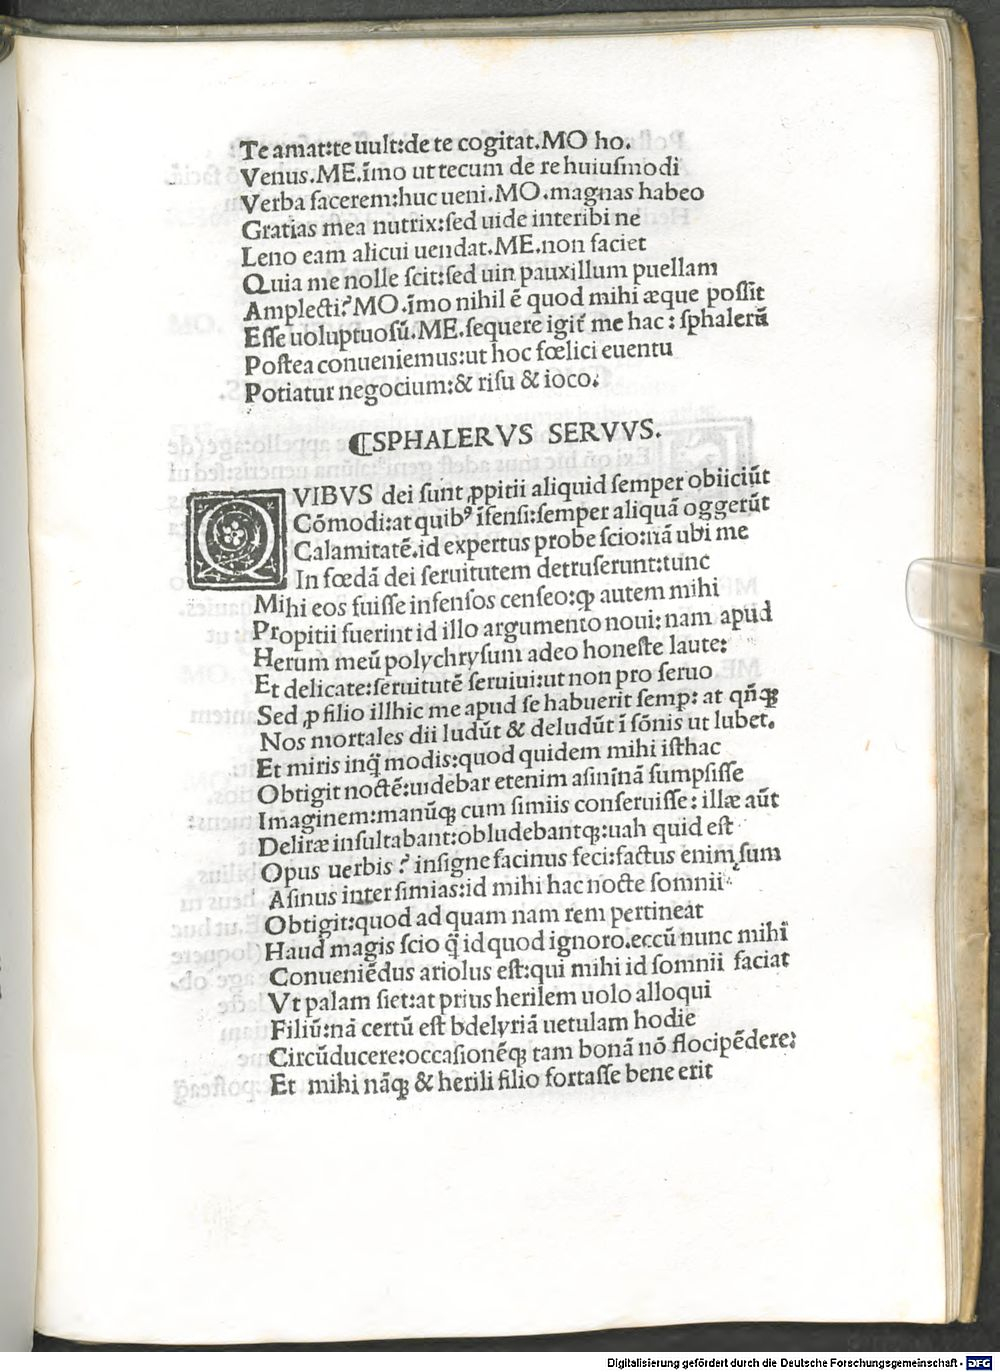 Te amat:te uult:de te cogitat.MO ho.
Venus.ME.ĩmo ut tecum de re huiuſmodi
Verba facerem:huc ueni.MO.magnas habeo
Gratias mea nutrix:ſed uide interibi ne
Leno eam alicui uendat.ME.non faciet
Quia me nolle ſcit:ſed uin pauxillum puellam
Amplecti?MO.ĩmo nihil ē quod mihi æque poſſit
Eſſe uoluptuoſũ.ME.ſequere igit᷑ me hac: ſphalerũ
Poſtea conueniemus:ut hoc fœlici euentu
Potiatur negocium:& riſu & ioco.
⸿SPHALERVS SERVVS.
QVIBVS dei ſunt ꝓpitii aliquid ſemper obiiciũt
Cõmodi:at quibꝰ ĩfenſi:ſemper aliquã oggerũt
Calamitatẽ.id expertus probe ſcio:nã ubi me
In fœdã dei ſeruitutem detruſerunt:tunc
Mihi eos fuiſſe infenſos cenſeo:ꝙ autem mihi
Propitii fuerint id illo argumento noui: nam apud
Herum meũ polychryſum adeo honeſte laute:
Et delicate:ſeruitutẽ ſeruiui:ut non pro ſeruo
Sed ꝓ filio illhic me apud ſe habuerit ſemp: at qñꝗꝫ
Nos mortales dii ludũt & deludũt ĩ ſõnis ut lubet.
Et miris inq̃ modis:quod quidem mihi iſthac
Obtigit noctẽ:uidebar etenim aſinĩnã ſumpſiſſe
Imaginem:manũꝗꝫ cum ſimiis conſeruiſſe: illæ aũt
Deliræ inſultabant:obludebantꝗꝫ:uah quid eſt
Opus uerbis? inſigne facinus feci:factus enim ſum
Aſinus inter ſimias:id mihi hac nocte ſomnii
Obtigit:quod ad quam nam rem pertineat
Haud magis ſcio q̃ id quod ignoro.eccũ nunc mihi
Conueniẽdus ariolus eſt:qui mihi id ſomnii faciat
Vt palam ſiet:at prius herilem uolo alloqui
Filiũ:nã certũ eſt bdelyriã uetulam hodie
Circũducere:occaſionẽꝗꝫ tam bonã nõ flocipẽdere:
Et mihi nãꝗꝫ & herili filio fortaſſe bene erit
Digitalisierung gefördert durch die Deutsche Forschungsgemeinschaft - DFG